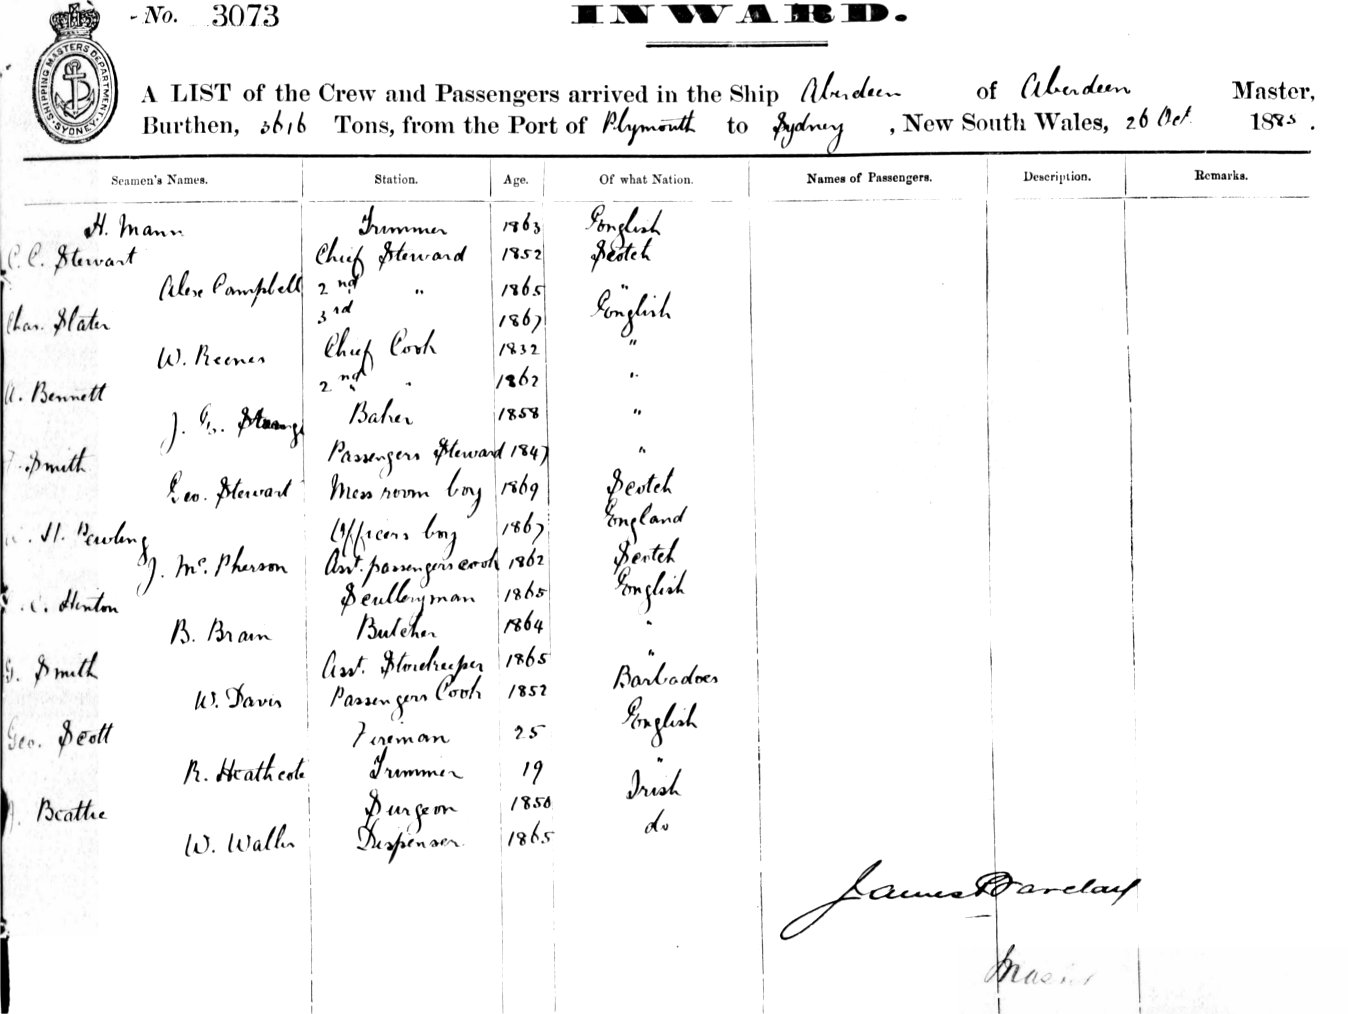 No. 3073
INWARD.
SHIPPING MASTERS DEPARTMENT. SYDNEY
A LIST of the Crew and Passengers arrived in the Ship Aberdeen of Aberdeen Master,
Burthen, 3616 Tons, from the Port of Plymouth to Sydney, New South Wales, 26 Oct 1885.
Seamen's Names. Station. Age. Of what Nation. Names of Passengers. Description. Remarks.
H. Mann Trimmer 1863 English
C. C. Stewart Chief Steward 1852 Scotch
Alex Campbell 2nd " 1865 "
Chas. Slater 3rd 1867 English
W. Reener Chief Cook 1832 "
A. Bennett 2nd " 1862 "
J. G. Baker 1858 "
Smith Passengers Steward 1847 "
Geo. Stewart Mess room boy 1869 Scotch
H. Pewling Officers boy 1867 England
J. McPherson Asst. passengers cook 1862 Scotch
C. Hinton Sculleryman 1865 English
B. Brain Butcher 1864 "
G. Smith Asst. Storekeeper 1865 "
W. Davis Passengers Cook 1852 Barbadoes
Geo. Scott Fireman 25 English
R. Heathcote Trimmer 19 "
J. Beattie Surgeon 1850 Irish
W. Waller Dispenser 1865 do
James Barclay
Master